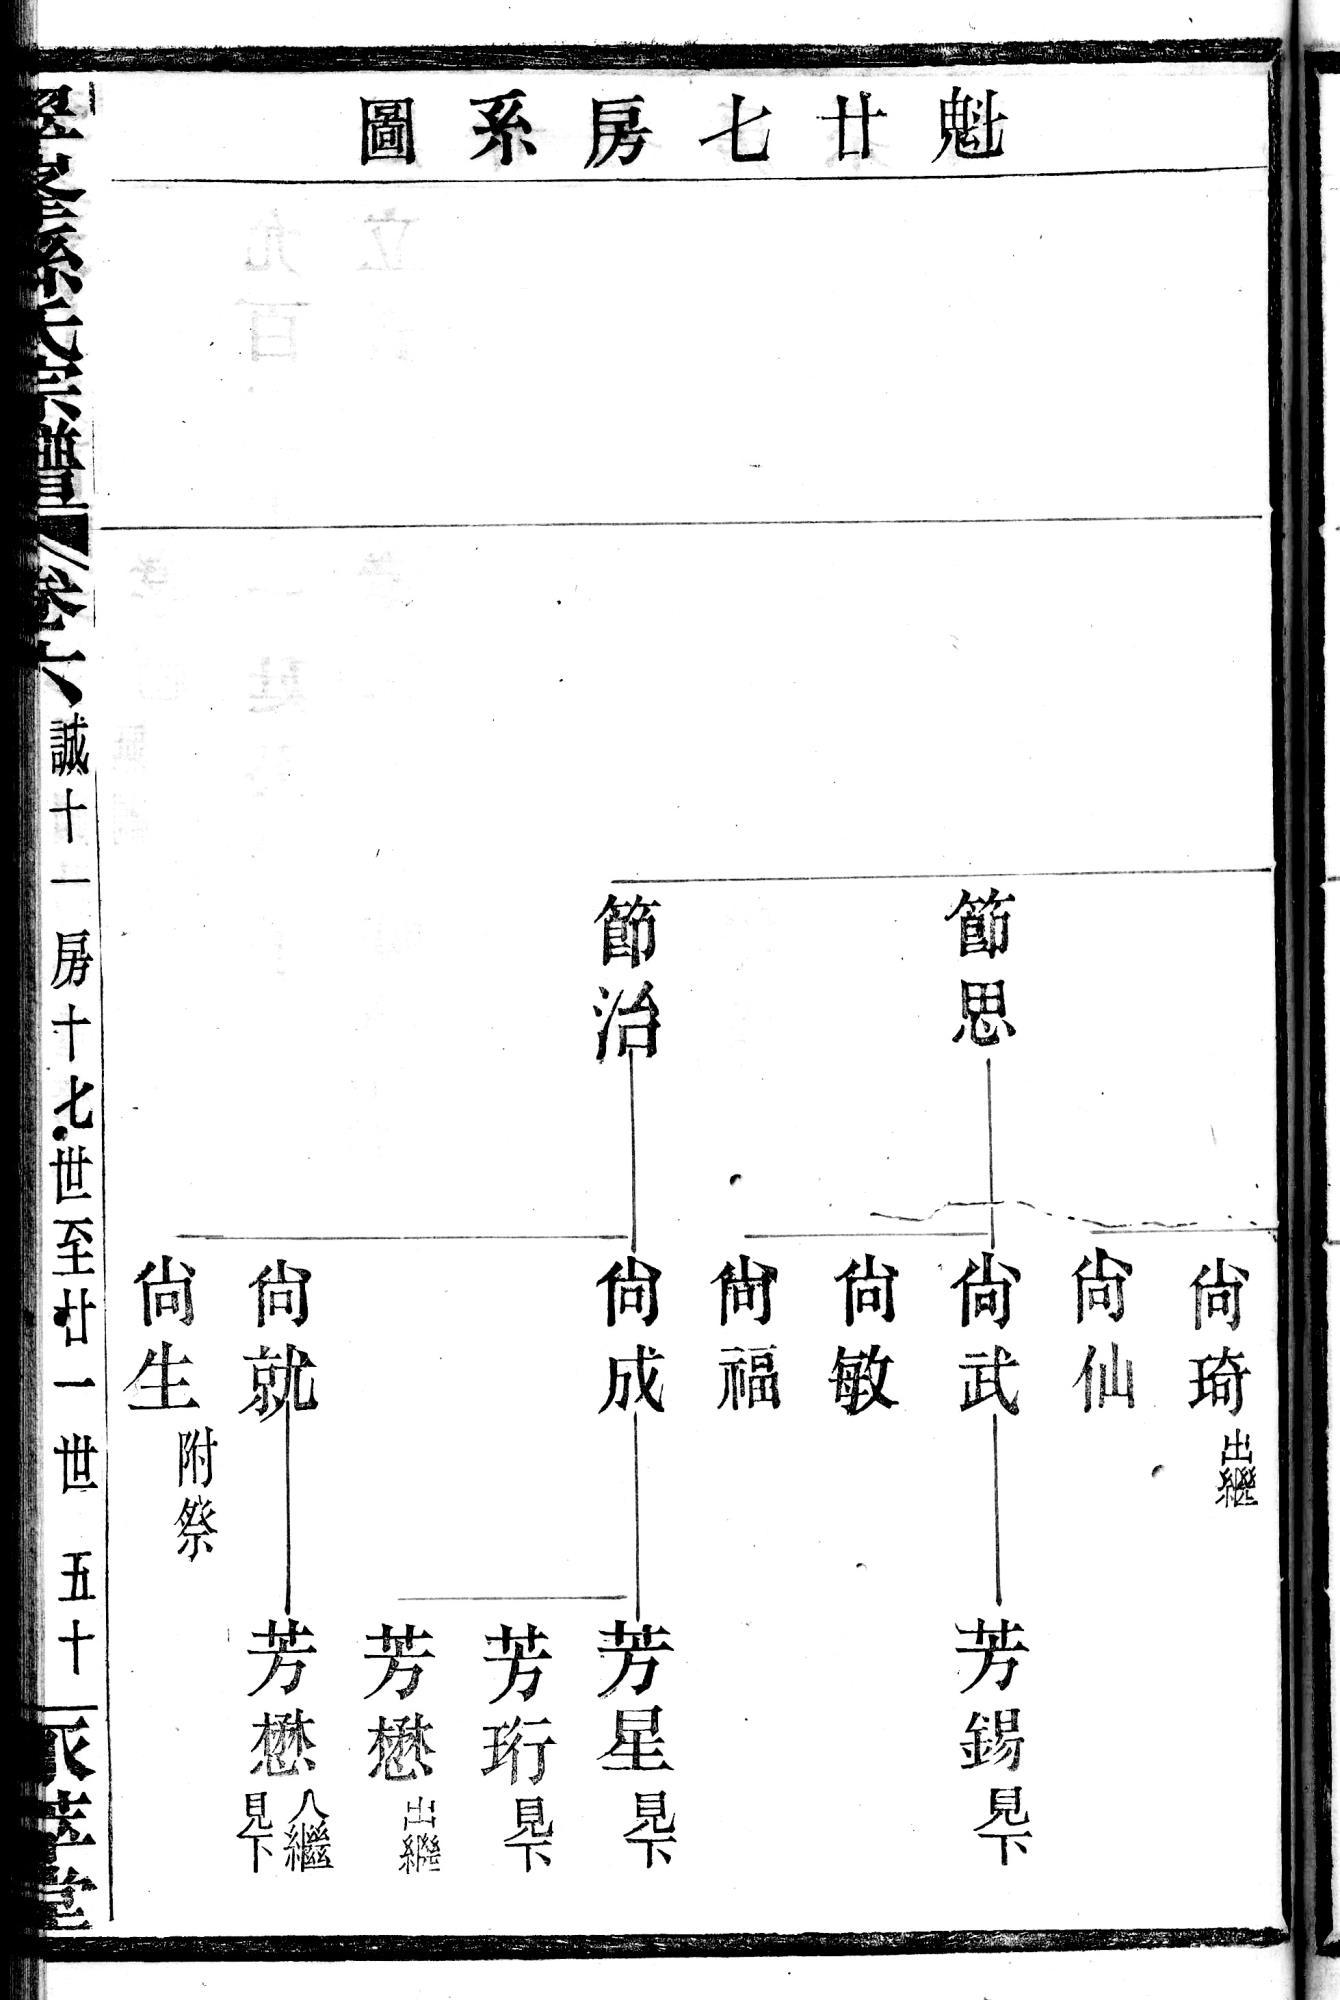 魁廿七房系圖
節思
節治
尙琦 出繼
尙仙
尙武
尙敏
尙福
尙成
尙就
尙生 附祭
芳錫 見下
芳星 見下
芳珩 見下
芳懋 出繼
芳懋 入繼 見下
孫氏宗譜 卷六 誠十一房十七世至廿一世 五十